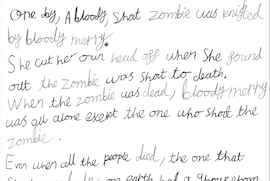 One day, A bloody, shot zombie was
by bloody merry.
She cut her own head off when she found
out the zombie was shot to death.
When the zombie was dead, bloody merry
was all alone exept the one who shot the
zombie.
Even when all the people died, the one that
on earth had a